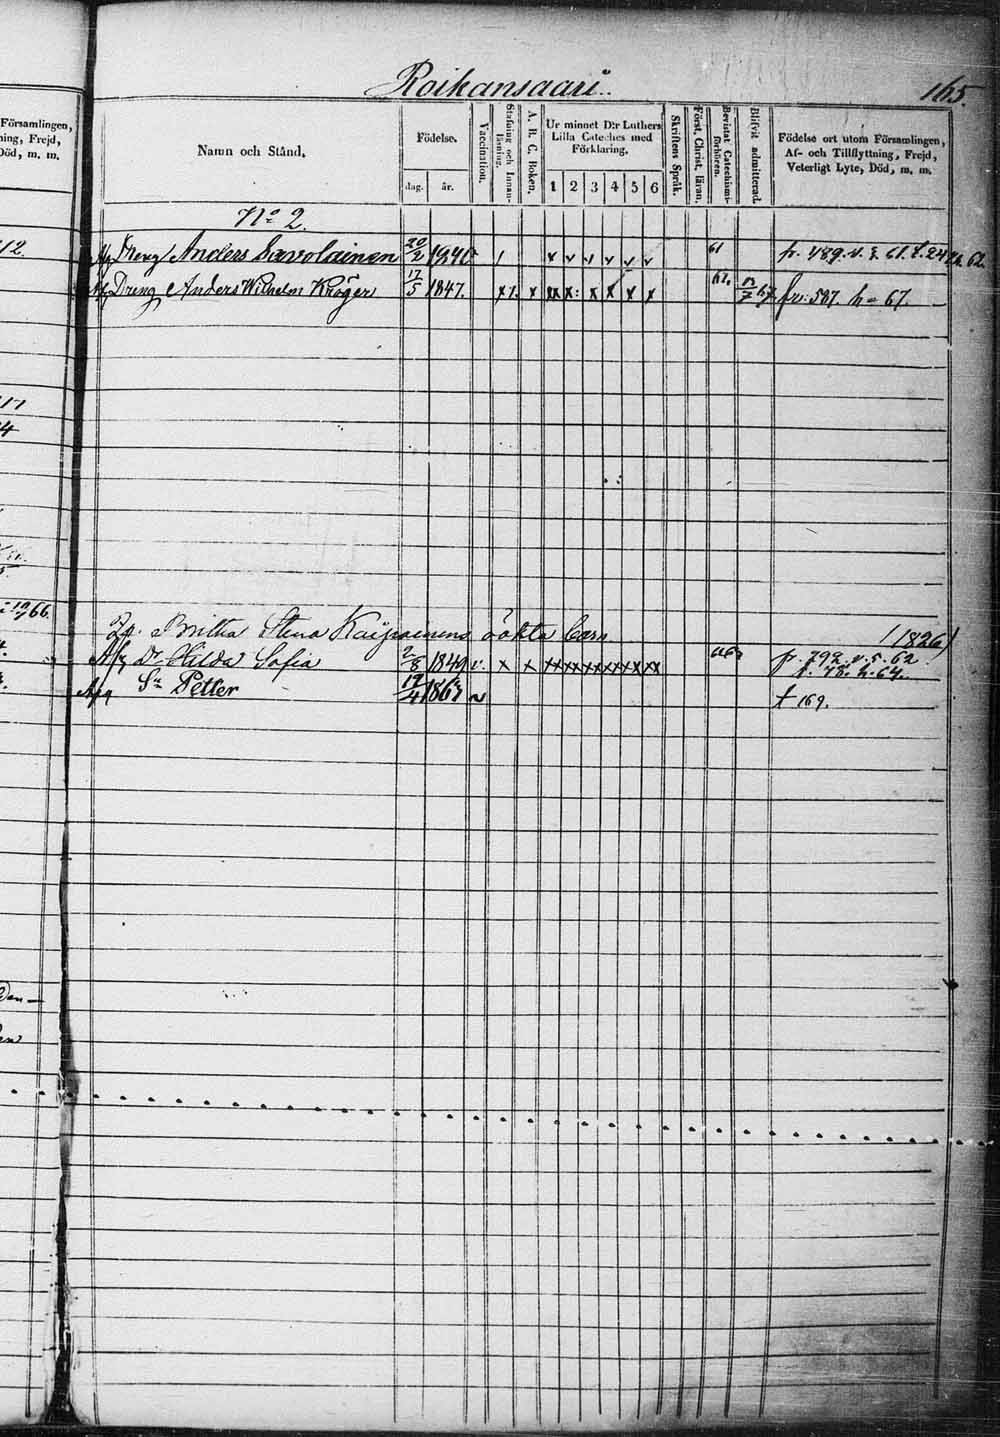 Roikansaari.
165.
Församlingen,
ning, Frejd,
Död, m. m.
Namn och Stånd.
Födelse.
dag. år.
Vaccination.
Stafning och Innan-läsning.
A. B. C. Boken.
Ur minnet D:r Luthers
Lilla Cateches med
Förklaring.
1 2 3 4 5 6
Skriftens Språk.
Först. Christ. läran.
Bevistat Catechismi-förhören.
Blifvit admitterad.
Födelse ort utom Församlingen,
Af- och Tillflyttning, Frejd,
Veterligt Lyte, Död, m. m.
No 2.
Dreng Anders Savolainen 20/2 1840 v v v v v v 61 p. 489. v. 5. 61. t. 247. h. 62.
Dreng Anders Wilhelm Kröger 17/5 1847. x x x x x x 62. fr: 587. h = 67.
Britha Stena Kaipainens oökta barn (1826)
Afg Dr Hilda Sofia 2/8 1849 v. x x xx xx xx xx xx xx p. 792. v. 5. 62
t. 78. h. 64.
Sn Petter 19/4 t 169.
12.
17
4
66.
Den—